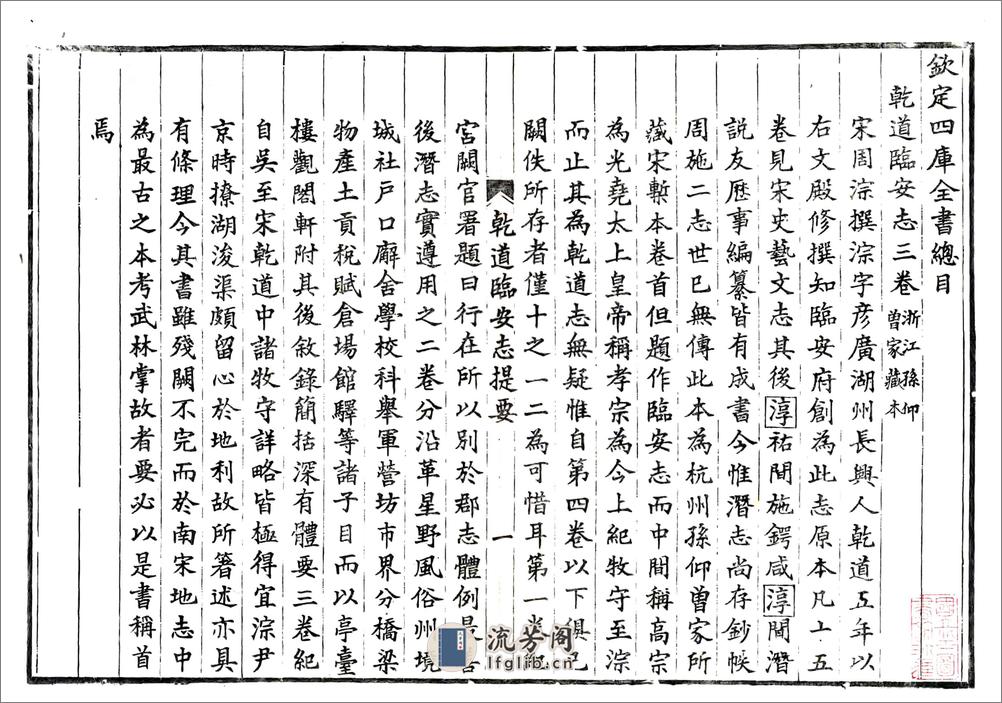 欽定四庫全書總目
乾道臨安志三卷 浙江孫仰曾家藏本
宋周淙撰淙字彦廣湖州長興人乾道五年以
右文殿修撰知臨安府創為此志原本凡十五
卷見宋史藝文志其後淳祐間施鍔咸淳間潛
說友歷事編纂皆有成書今惟潛志尚存鈔帙
周施二志世已無傳此本為杭州孫仰曾家所
藏宋槧本卷首但題作臨安志而中間稱高宗
為光堯太上皇帝稱孝宗為今上紀牧守至淙
而止其為乾道志無疑惟自第四卷以下俱已
闕佚所存者僅十之一二為可惜耳第一卷紀
乾道臨安志提要 一
宮闕官署題曰行在所以別於郡志體例最善
後潛志實遵用之二卷分沿革星野風俗州境
城社戶口廨舍學校科舉軍營坊市界分橋梁
物產土貢稅賦倉場館驛等諸子目而以亭臺
樓觀閣軒附其後敘錄簡括深有體要三卷紀
自吳至宋乾道中諸牧守詳略皆極得宜淙尹
京時撩湖浚渠頗留心於地利故所著述亦具
有條理今其書雖殘闕不完而於南宋地志中
為最古之本考武林掌故者要必以是書稱首
焉
流芳閣
lfglib.cn